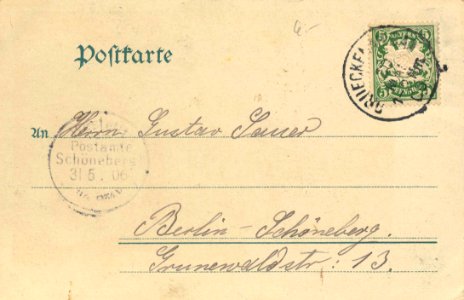 Postkarte
An Herrn Gustav Sauer
Postamte
Schöneberg
31 5. 06
Berlin-Schöneberg.
Grunewaldstr: 13.
BRUECKEN
5
5